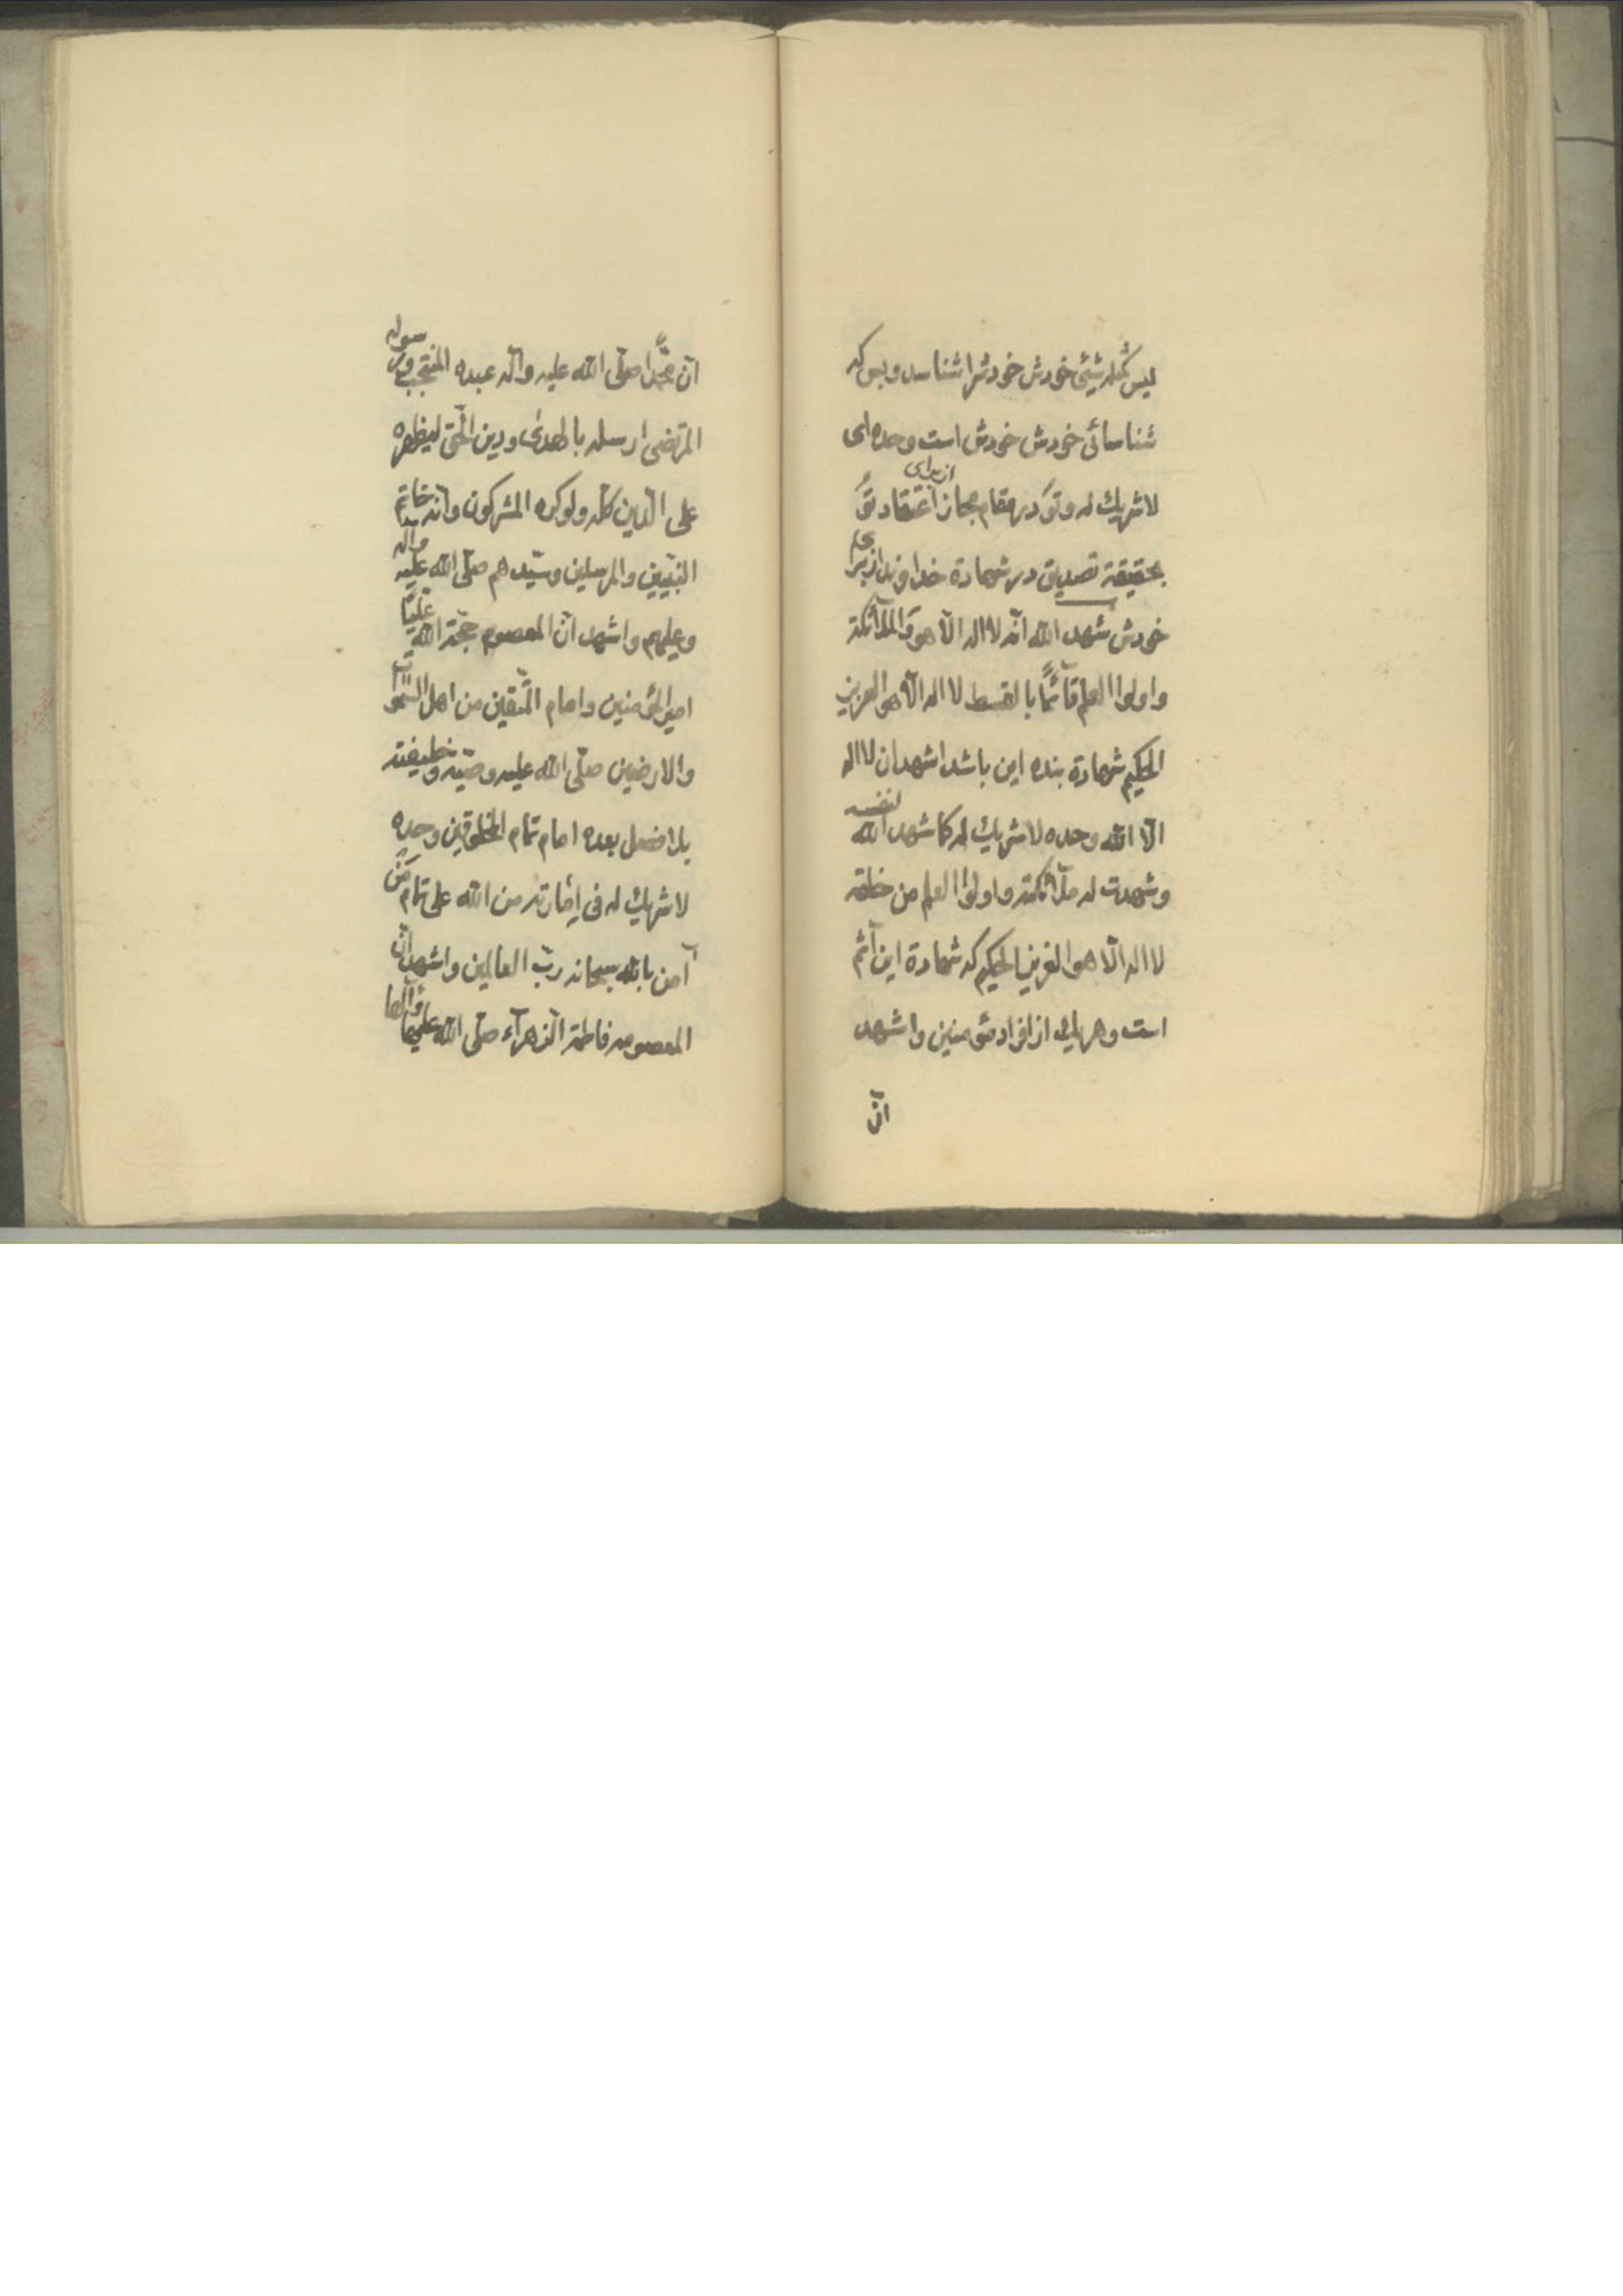 لیس کمثله شیئی خودش خودشرا شناسد و بس که
شناسائی خودش خودش است وحده ای
لا شریك له و تو در مقام مجاز اعتقاد تو
از برای
بحقیقة تصدیق در شهادة خداوند از برای
خودش شهد الله انّه لا اله الّا هو و الملآئکة
و اولوا العلم قآئمًا بالقسط لا اله الّا هو العزیز
الحکیم شهادة بنده این باشد اشهد ان لا اله
الّا الله وحده لا شریك له کما شهد الله لنفسه
و شهدت له ملآئکته و اولوا العلم من خلقه
لا اله الّا هو العزیز الحکیم که شهادة این آثم
است و هر یك از افراد مؤمنین و اشهد
انّ
انّ محمّدًا صلّی الله علیه و آله عبده المنتجب و رسوله
المرتضی ارسله بالهدی و دین الحّق لیظهره
علی الدّین کلّه و لو کره المشرکون و انّه خاتم
النّبیّین و المرسلین و سیّدهم صلّی الله علیه و آله
و علیهم و اشهد انّ المعصوم حجّة الله علیًّا
امیر المؤمنین و امام المتّقین من اهل السّموات
و الارضین صلّی الله علیه وصیّه و خلیفته
بلا فصل بعده امام تمام المخلوقین وحده
لا شریك له فی إمارته من الله علی تمام مَن
آمن بالله سبحانه ربّ العالمین و اشهد انّ
المعصومه فاطمة الزّهرآء صلّی الله علیها و آلها